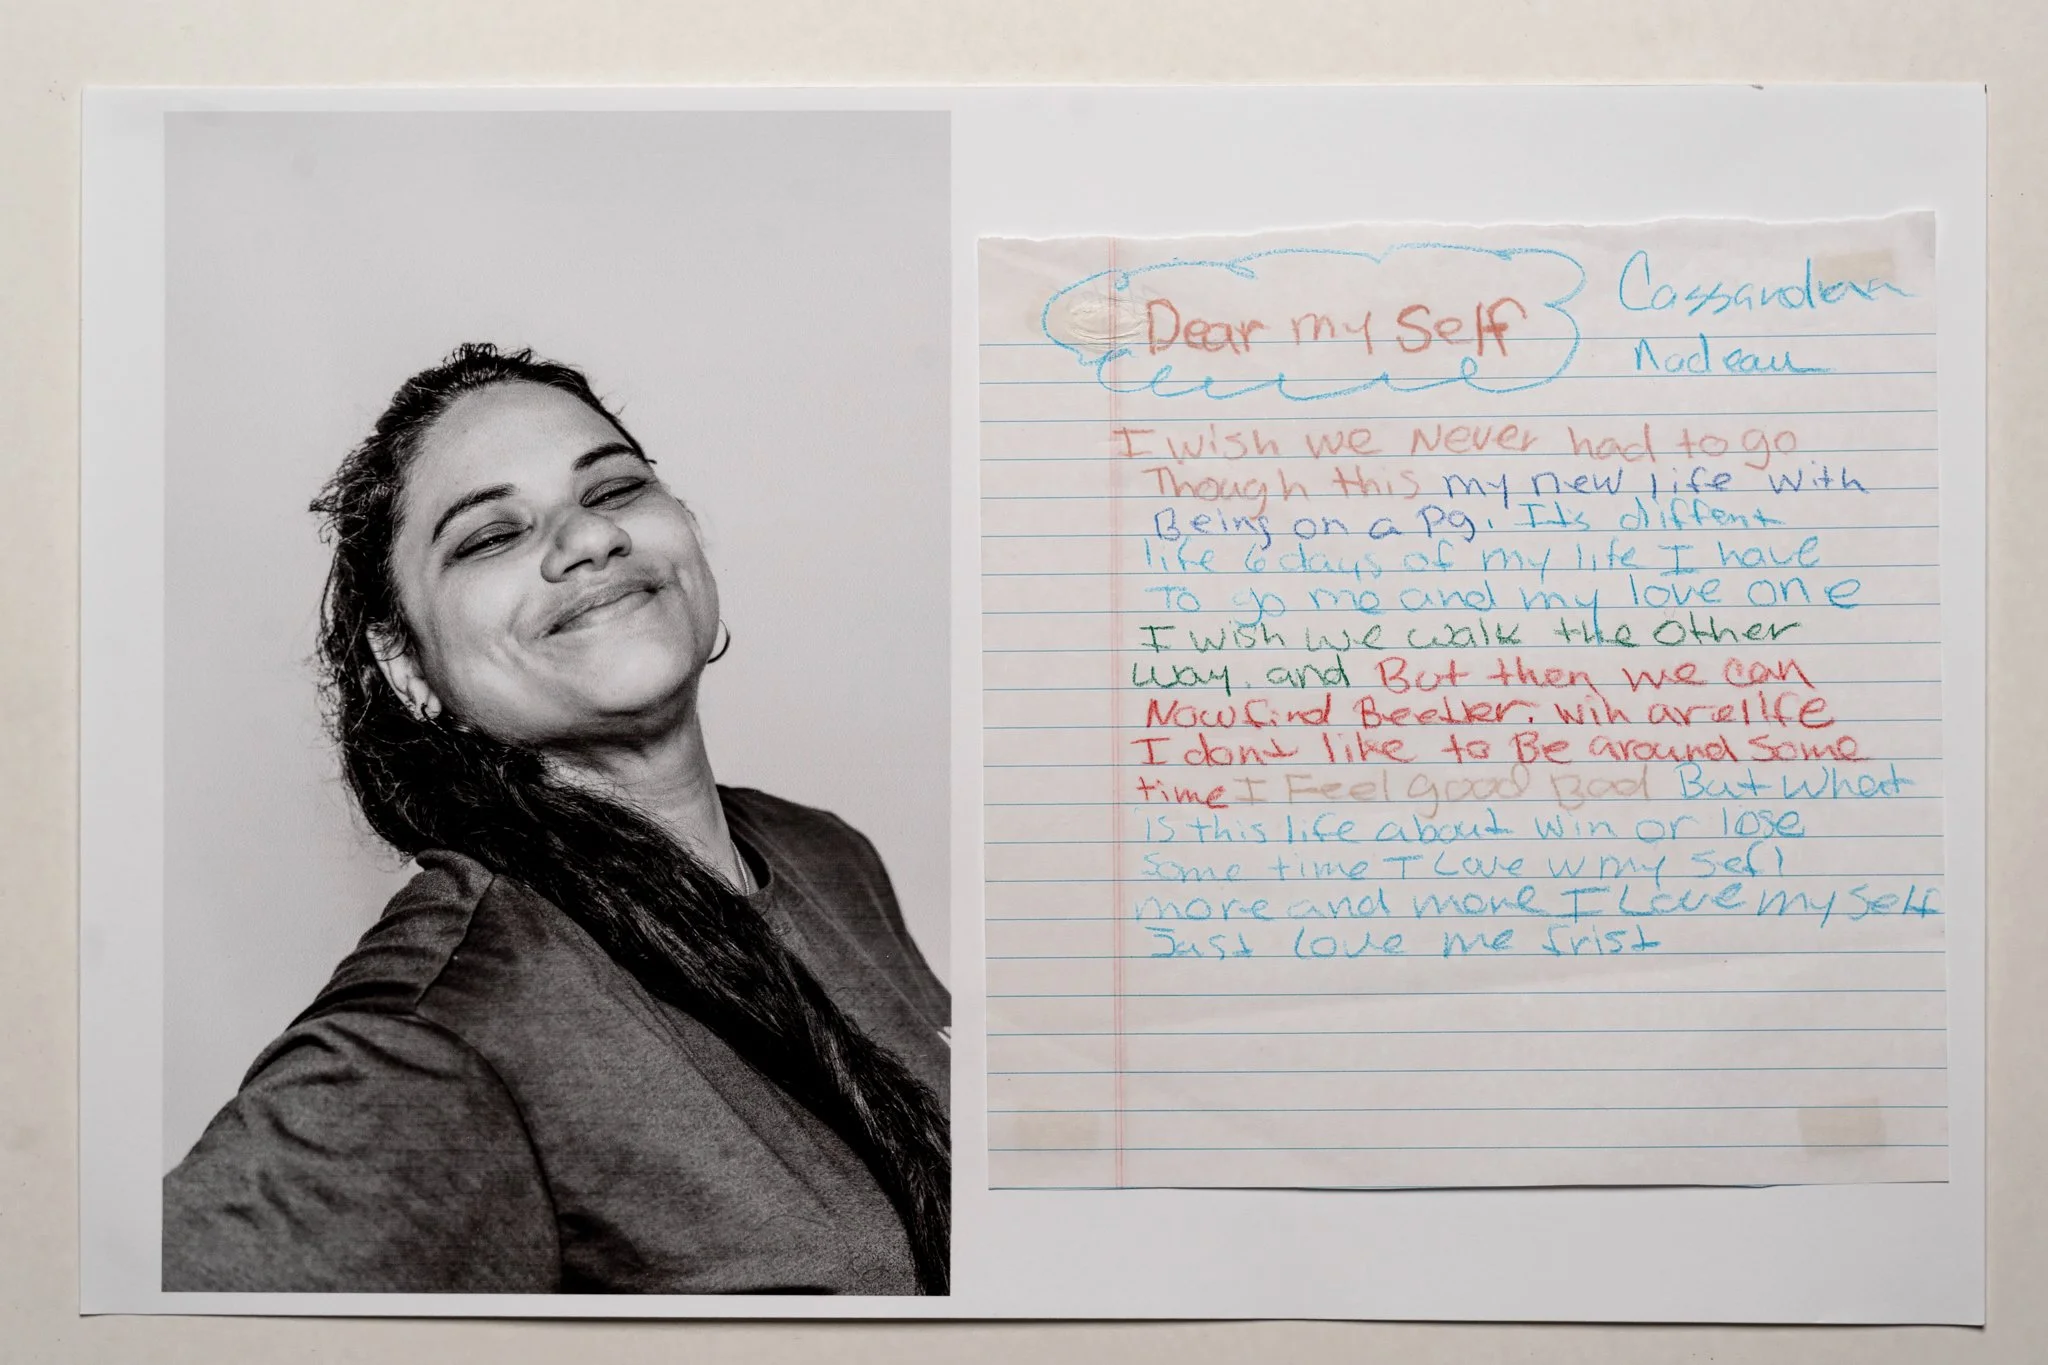 Dear my Self
Cassandra
Nadeau
I wish we Never had to go
Though this my new life with
Being on a Pg. It's diffent
life 6 days of my life I have
To go me and my love one
I wish we walk the other
way. and But then we can
Now find Beetker. win are life
I dont like to Be around some
time I Feel good Bad But What
is this life about win or lose
Some time I Love w my sefl
more and more I Love my self
Just love me frist